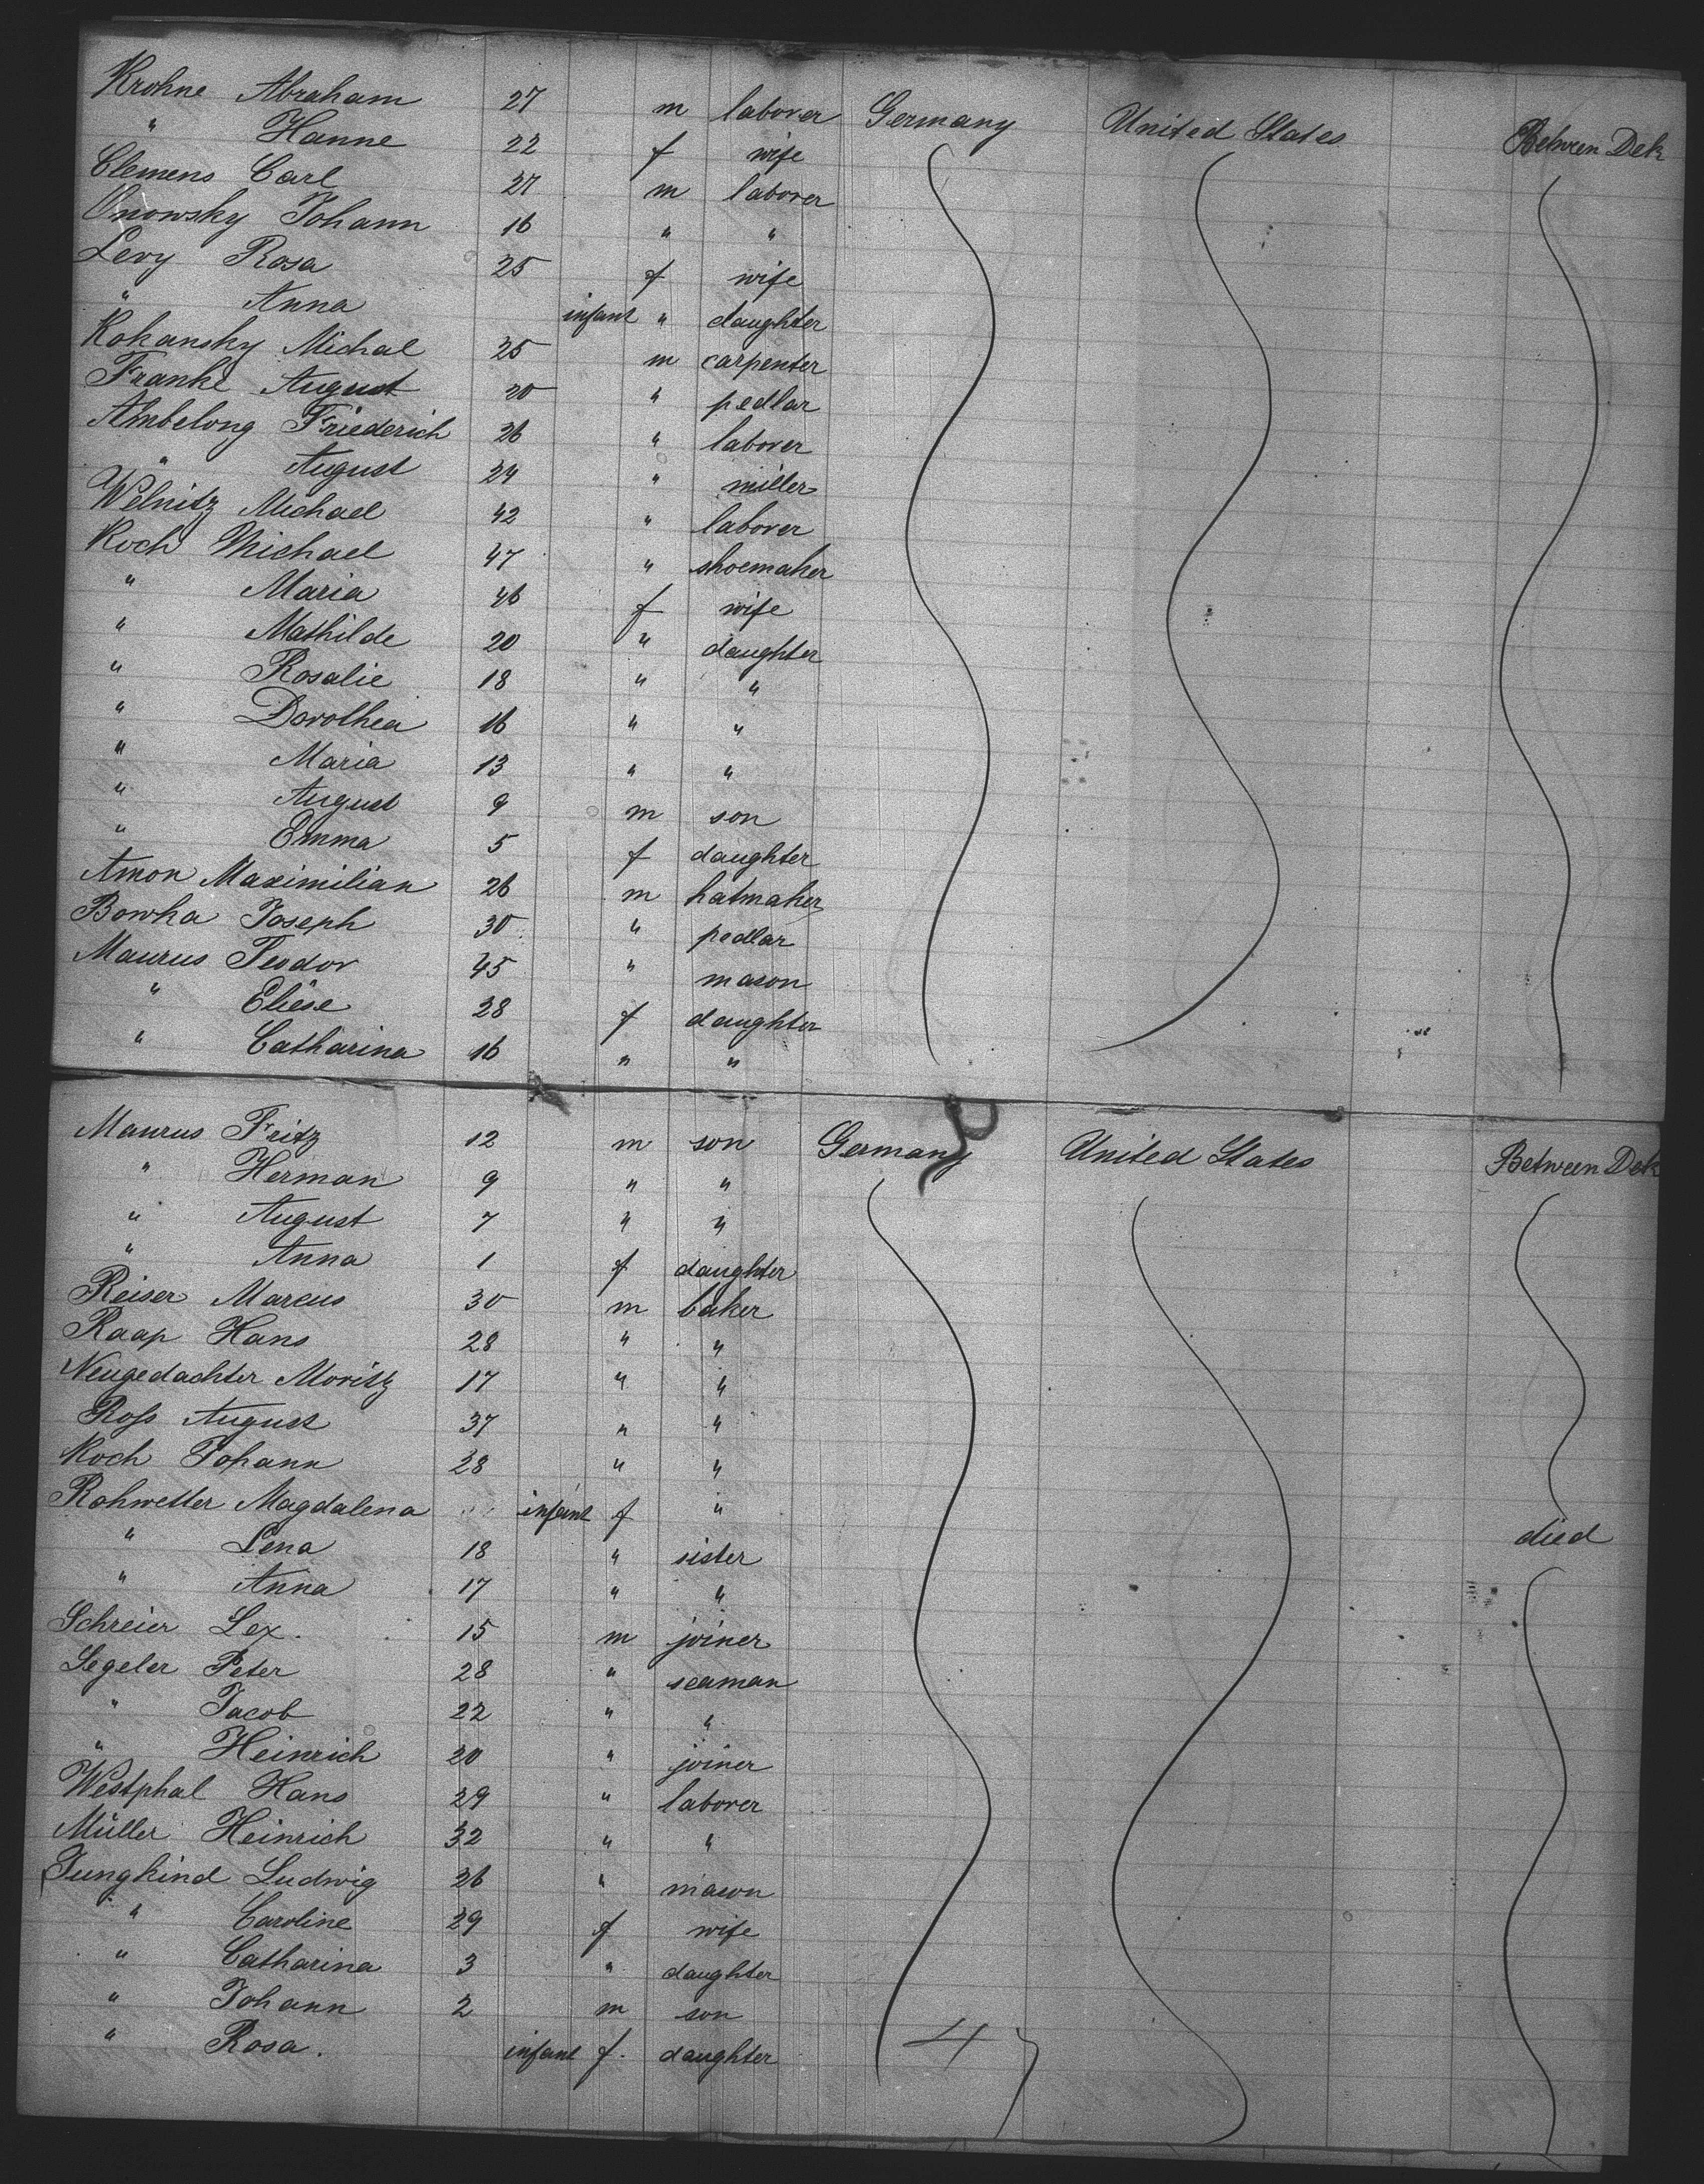 Krohne Abraham 27 m laborer Germany United States Between Dek
" Hanne 22 f wife
Clemens Carl 27 m laborer
Onowsky Johann 16 " "
Levy Rosa 25 f wife
" Anna infant " daughter
Kohansky Michal 25 m carpenter
Franke August 20 " pedlar
Ambelong Friederich 26 " laborer
" August 24 " miller
Welnitz Michael 42 " laborer
Koch Michael 47 " shoemaker
" Maria 46 f wife
" Mathilde 20 " daughter
" Rosalie 18 " "
" Dorothea 16 " "
" Maria 13 " "
" August 9 m son
" Emma 5 f daughter
Amon Maximilian 26 m hatmaker
Bowka Joseph 30 " pedlar
Maurus Teodor 45 " mason
" Eliese 28 f daughter
" Catharina 16 " "
Maurus Fritz 12 m son Germany United States Between Dek
" Herman 9 " "
" August 7 " "
" Anna 1 f daughter
Reiser Marcus 30 m baker
Raap Hans 28 " "
Neugedachter Moritz 17 " "
Ross August 37 " "
Koch Johann 28 " "
Rohwetter Magdalena infant f " died
" Lena 18 " sister
" Anna 17 " "
Schreier Lex. 15 m joiner
Segeler Peter 28 " seaman
" Jacob 22 " "
" Heinrich 20 " joiner
Westphal Hans 29 " laborer
Müller Heinrich 32 " "
Jungkind Ludwig 26 " mason
" Caroline 29 f wife
" Catharina 3 " daughter
" Johann 2 m son
" Rosa. infant f. daughter 47